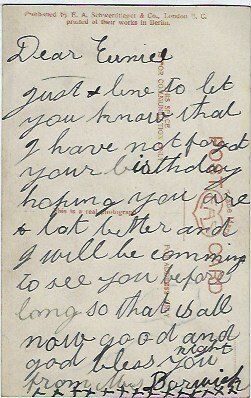 Published by E. A. Schwerdtfeger & Co., London E. C.
printed at their works in Berlin.
Dear Eunice
just a line to let
you know that
I have not forgot
your birthday
hoping you are
a lot better and
I will be comming
to see you before
long so that is all
now good night and
god bless you
from Mrs Barwick
x x x x x x x x x x
POST CARD
This is a real photograph